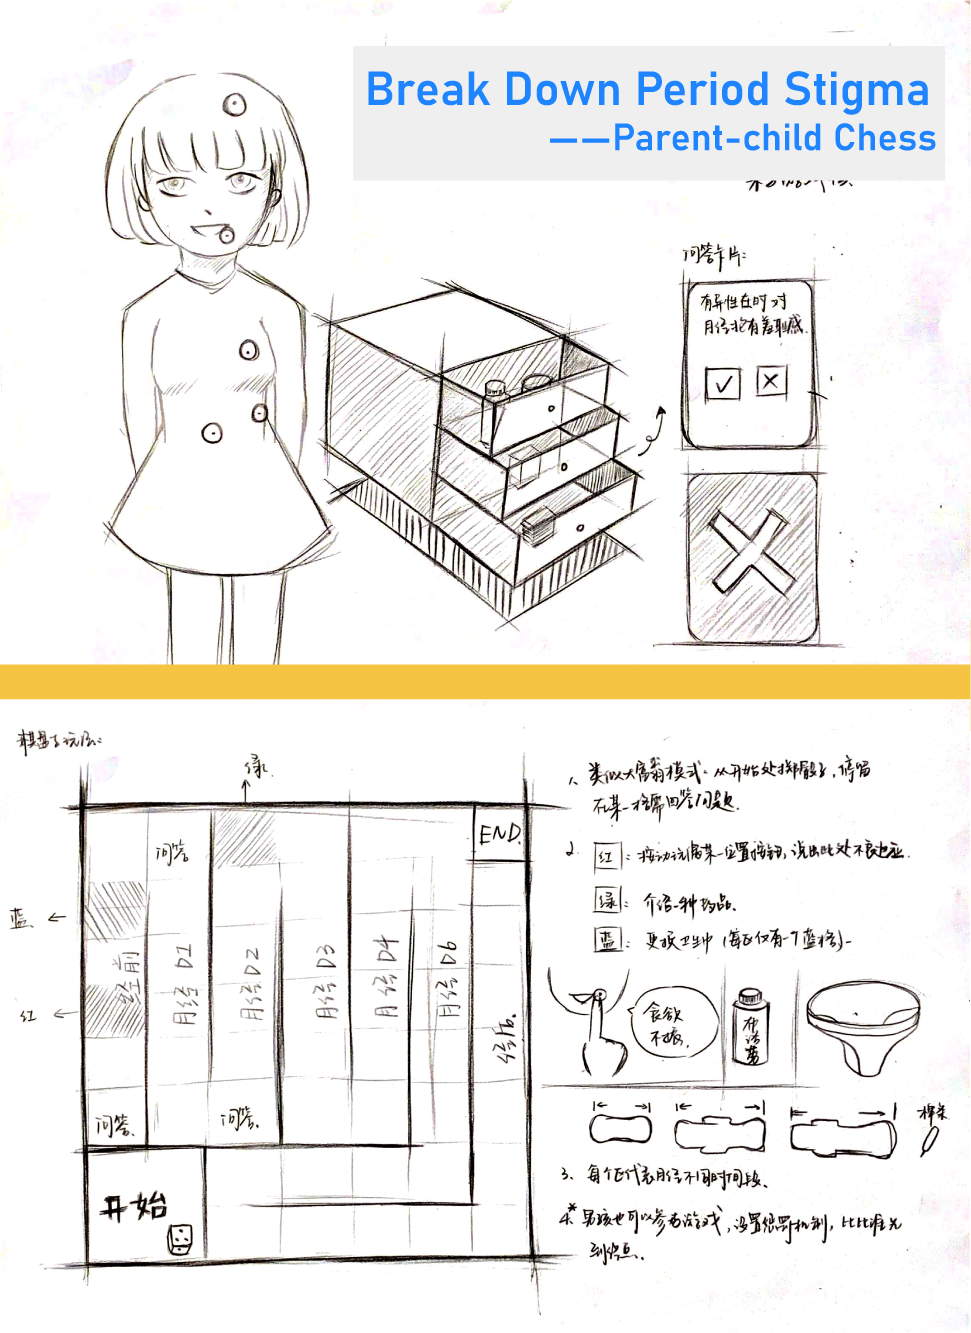 Break Down Period Stigma
——Parent-child Chess
问答卡片:
有异性在时对
月经抱有羞耻感.
棋盘与玩法:
绿.
问答
END.
蓝
红
经前
月经 D1
月经 D2
月经 D3
月经 D4
月经 D6
经后.
问答.
问答.
开始
1、类似大富翁模式. 从开始处掷骰子, 停留
在某一格需回答问题.
2. 红: 按动玩偶某一位置按钮, 说出此处不良反应.
绿: 介绍一种药品.
蓝: 更换卫生巾 (每区仅有一个蓝格).
食欲
不振.
布洛芬
棉条
3、每个区代表月经不同时间段.
4.* 男孩也可以参与游戏, 设置惩罚机制, 比比谁先
到终点.